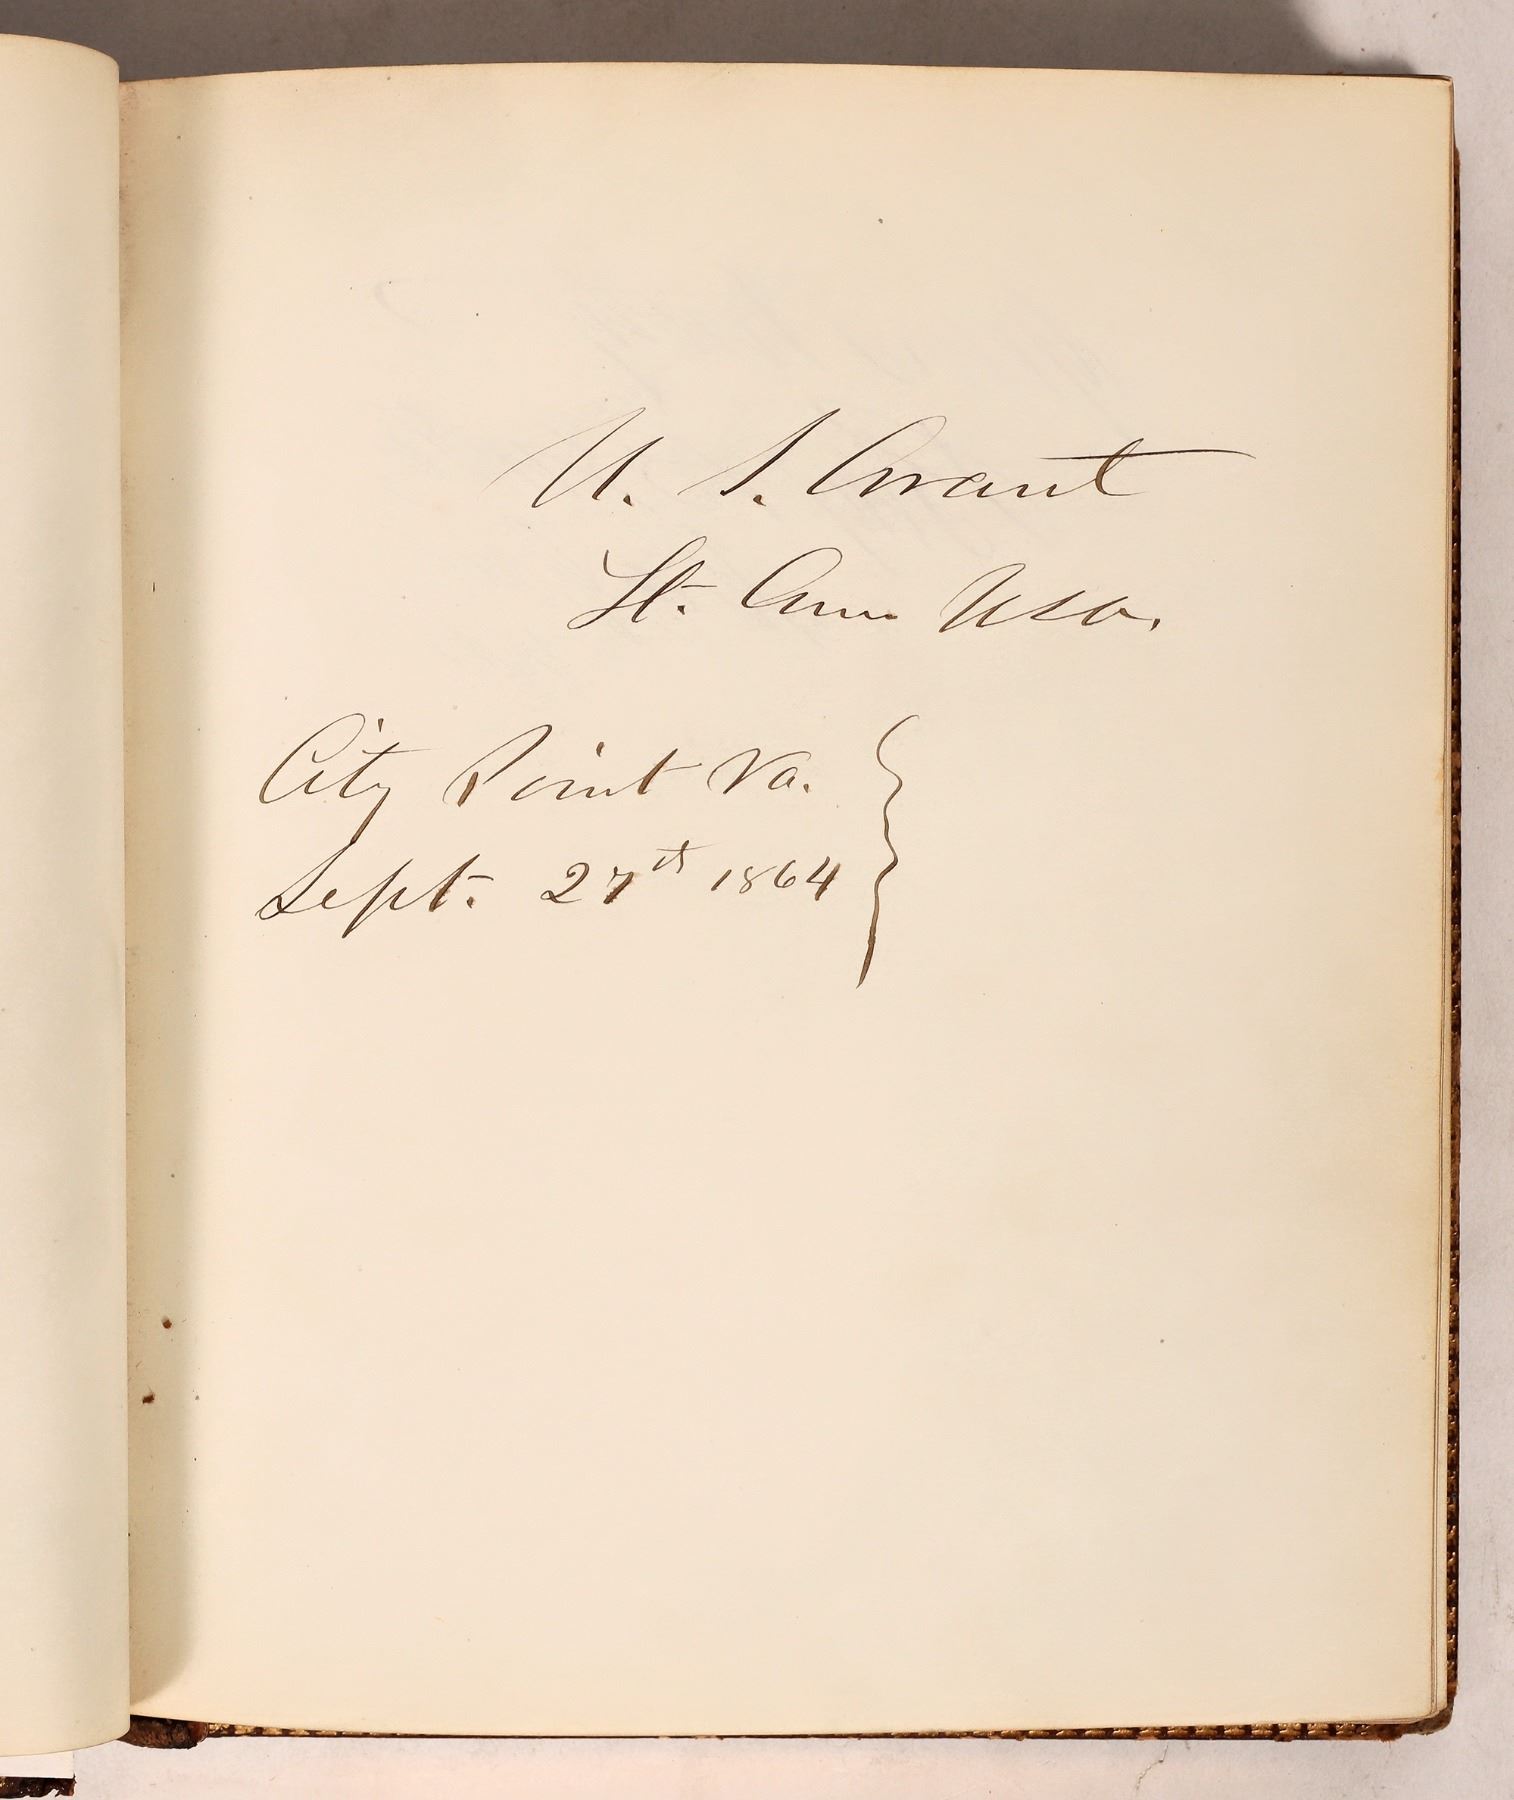 U. S. Grant
Lt. Gen. U.S.A.
City Point Va.
Sept. 27th 1864